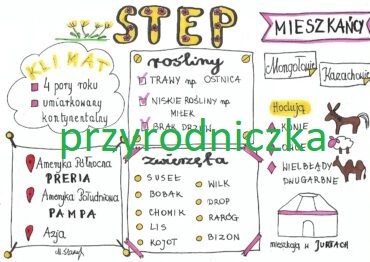 STEP
MIESZKAŃCY
KLIMAT
4 pory roku
umiarkowany
kontynentalny
rośliny
TRAWY np. OSTNICA
NISKIE ROŚLINY np.
MIŁEK
BRAK DRZEW
Mongołowie
Kazachowie
Hodują
KONIE
OWCE
WIELBŁĄDY
DWUGARBNE
przyrodniczka
Ameryka Północna
PRERIA
Ameryka Południowa
PAMPA
Azja
zwierzęta
SUSEŁ
BOBAK
CHOMIK
LIS
KOJOT
WILK
DROP
RARÓG
BIZON
mieszkają w JURTACH